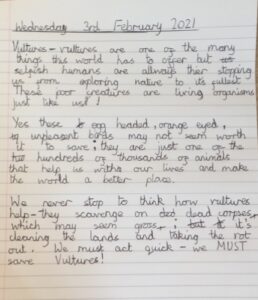 Wednesday 3rd February 2021
Vultures - vultures are one of the many
things this world has to offer but us
selfish humans are allways ther stopping
us from exploring nature to its fullest.
These poor creatures are living organisms
just like us!
Yes these egg headed, orange eyed,
unpleasent birds may not seem worth
it to save; they are just one of the
hundreds of thousands of animals
that help us withs our lives and make
the world a better place.
We never stop to think how vultures
help - they scavenge on ded dead corpses
which may seem gross; but it's
cleaning the lands and taking the rot
out. We must act quick - we MUST
save Vultures!